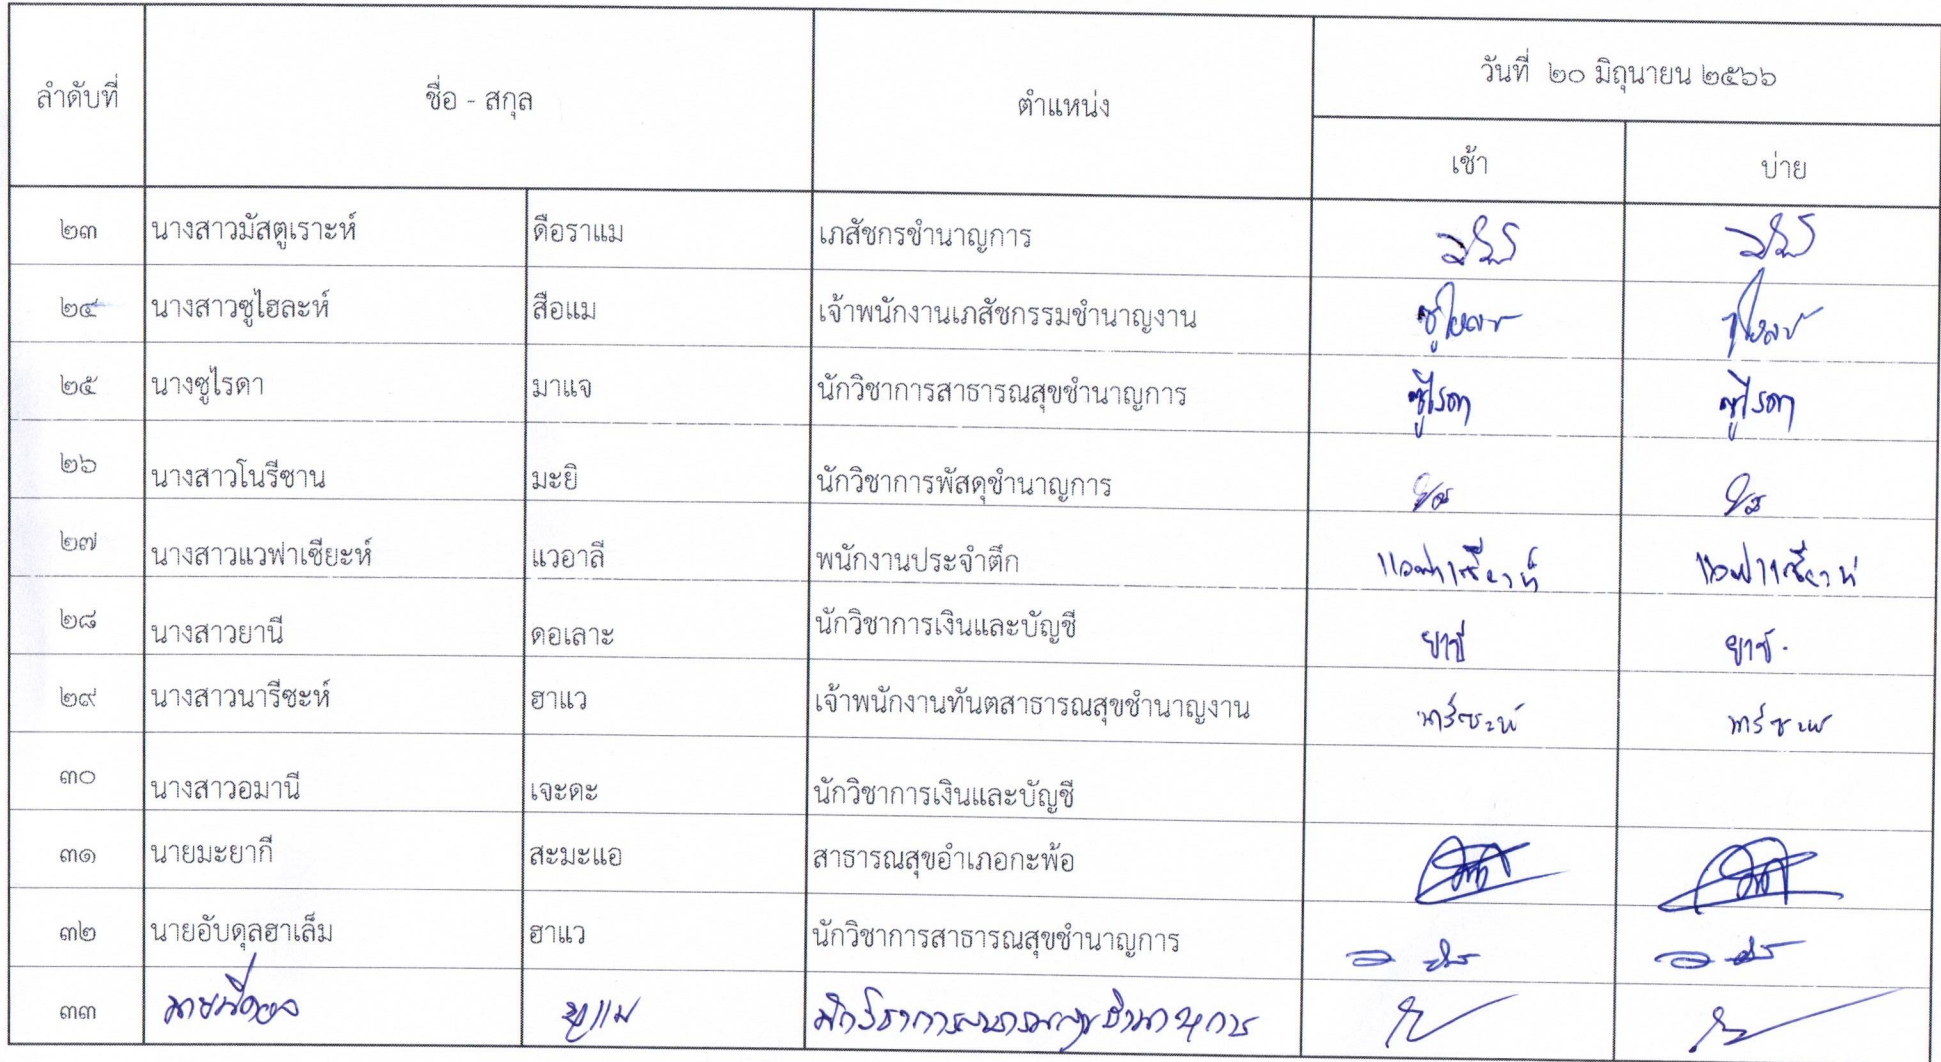 ลำดับที่ ชื่อ - สกุล ตำแหน่ง วันที่ ๒๐ มิถุนายน ๒๕๖๖
เช้า บ่าย
๒๓ นางสาวมัสตูเราะห์ ดือราแม เภสัชกรชำนาญการ
๒๔ นางสาวซูไฮละห์ สือแม เจ้าพนักงานเภสัชกรรมชำนาญงาน
๒๕ นางซูไรดา มาแจ นักวิชาการสาธารณสุขชำนาญการ ซูไรดา ซูไรดา
๒๖ นางสาวโนรีซาน มะยิ นักวิชาการพัสดุชำนาญการ
๒๗ นางสาวแวฟาเซียะห์ แวอาลี พนักงานประจำตึก
๒๘ นางสาวยานี ดอเลาะ นักวิชาการเงินและบัญชี
๒๙ นางสาวนารีซะห์ ฮาแว เจ้าพนักงานทันตสาธารณสุขชำนาญงาน
๓๐ นางสาวอมานี เจะดะ นักวิชาการเงินและบัญชี
๓๑ นายมะยากี สะมะแอ สาธารณสุขอำเภอกะพ้อ
๓๒ นายอับดุลฮาเล็ม ฮาแว นักวิชาการสาธารณสุขชำนาญการ
๓๓ นักวิชาการสาธารณสุขชำนาญการ